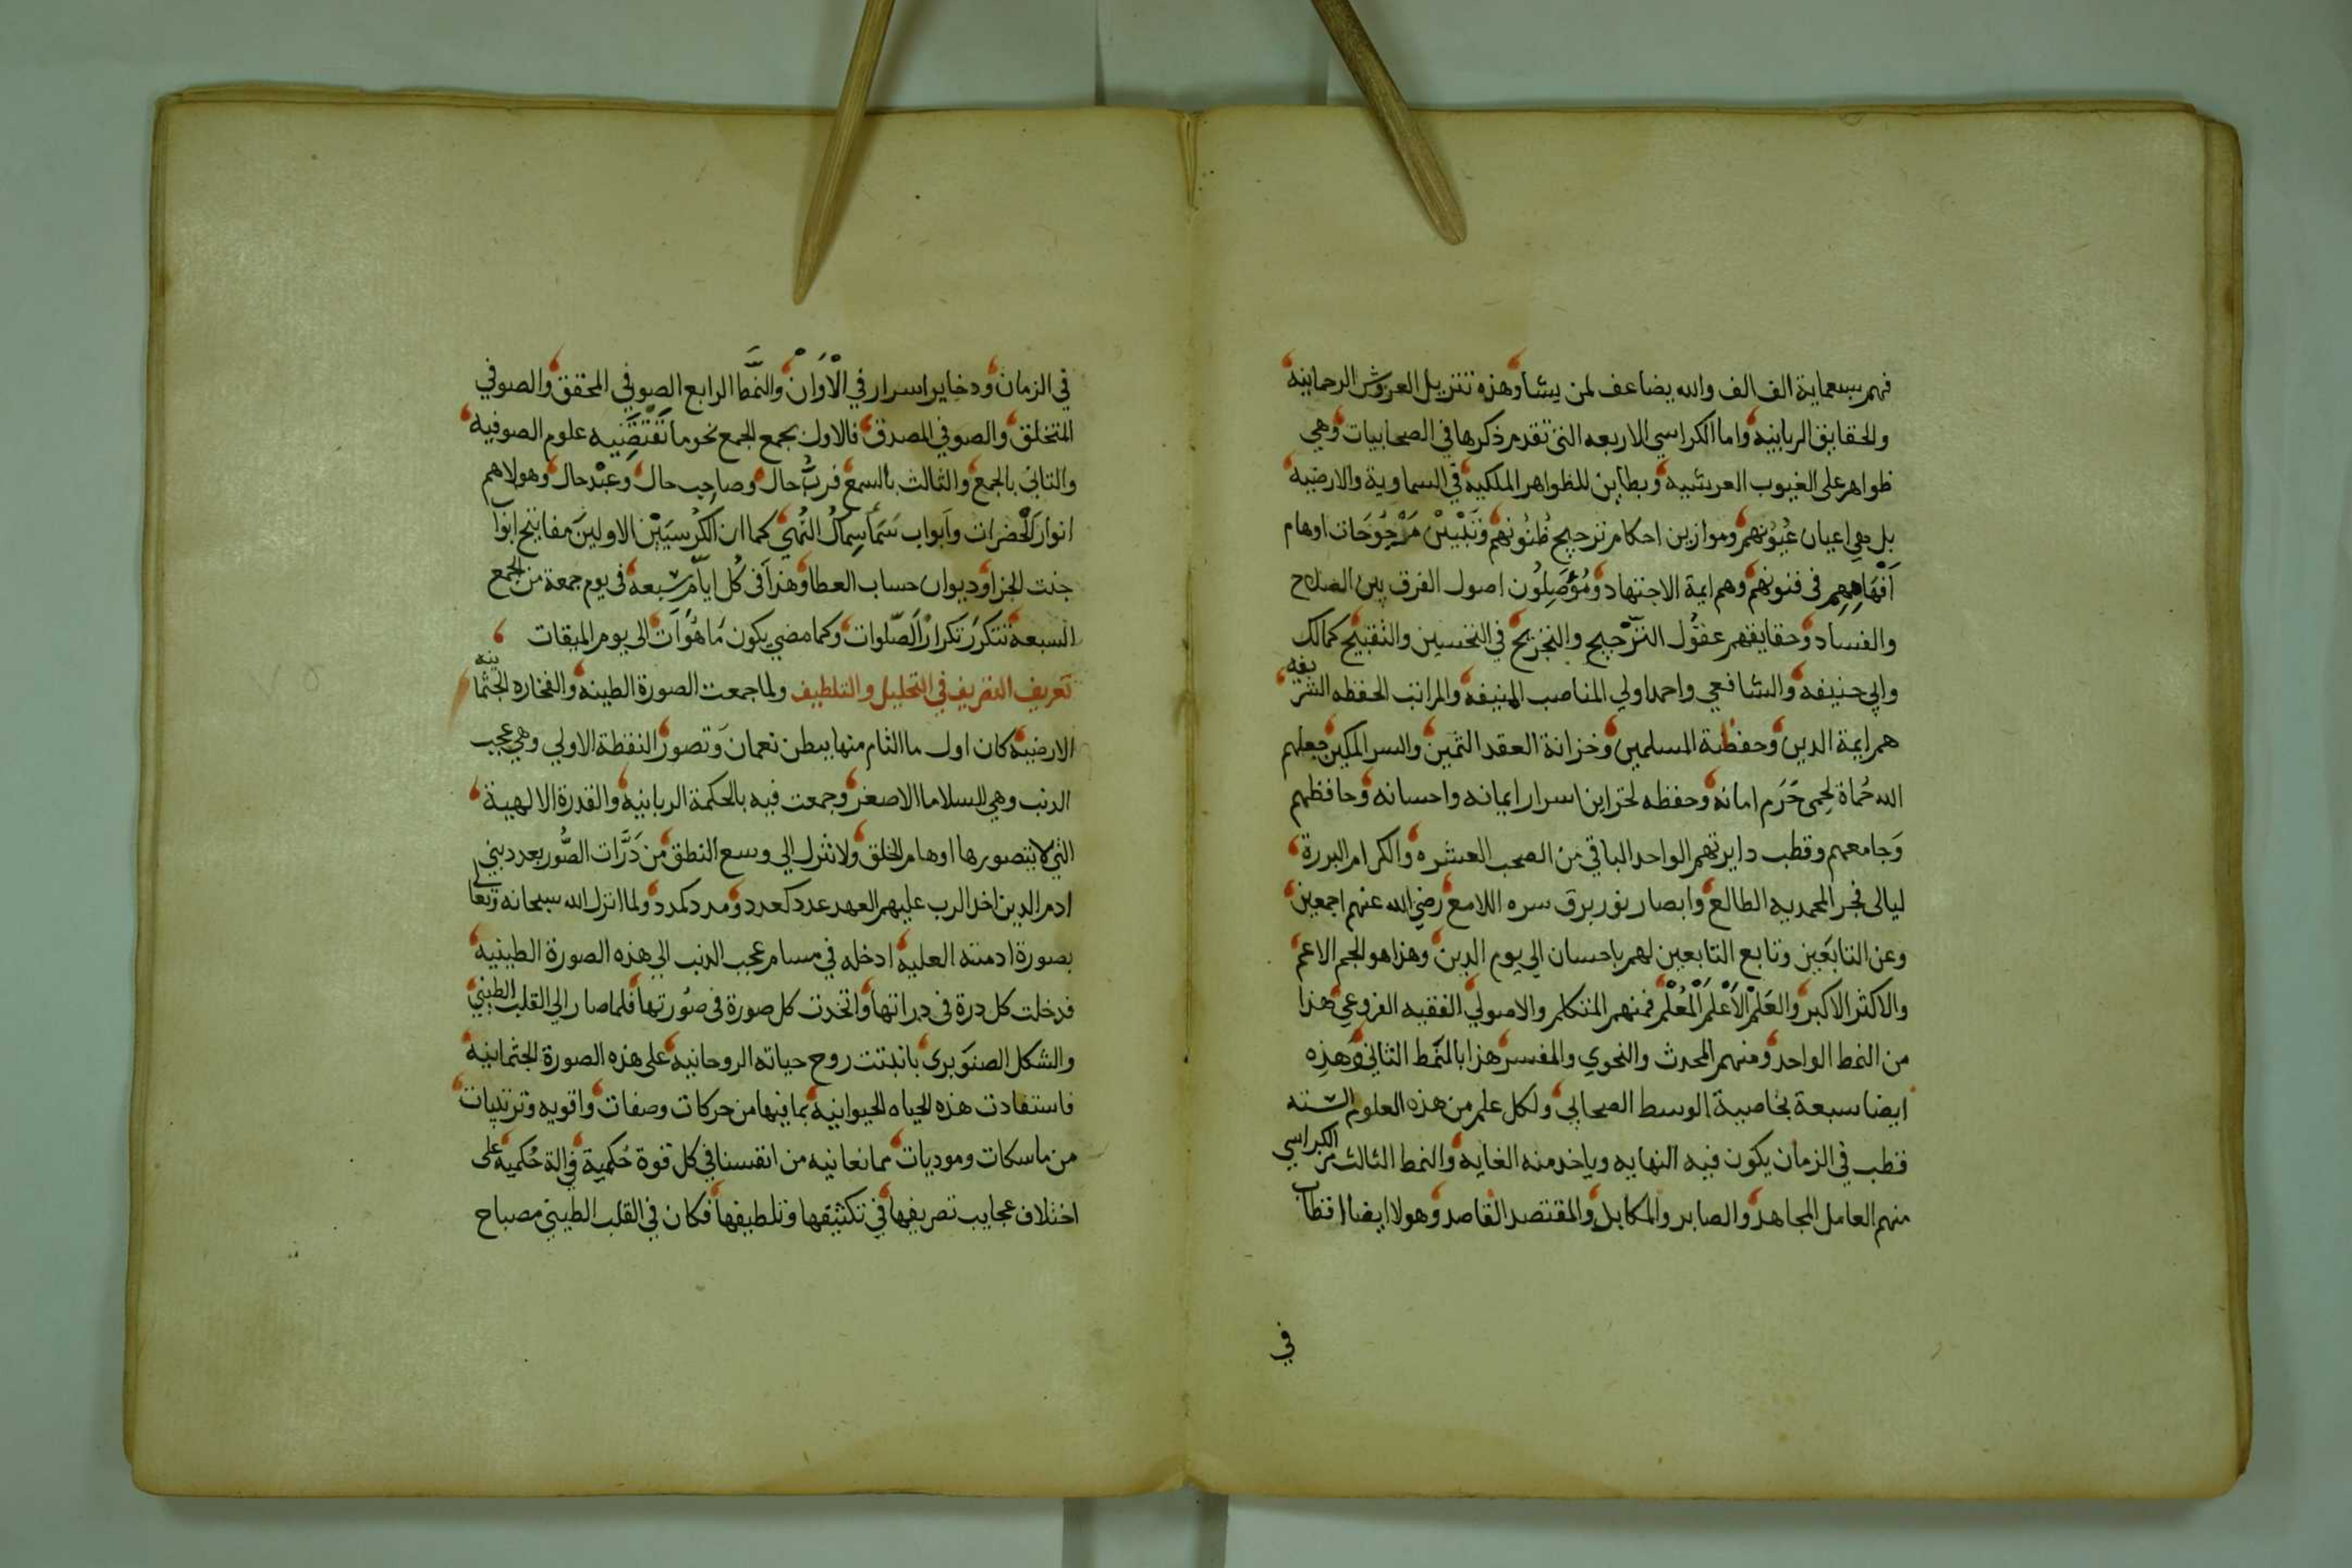 فهم سبعماية الف الف والله يضاعف لمن يشا وهذه تنزيل العروش الرحمانيه
والحقايق الربانيه واما الكراسي الاربعه التي تقدم ذكرها في الصحابيات وهي
ظواهر على الغيوب العرشيه وبطاين للظواهر الملكيه في السماوية والارضيه
بل هي اعيان عُيُونهم وموازين احكام ترجيح ظُنُونهم وتَبْيين مَرْجُوحَات اوهام
اَفْهَامِهِم في فنونهم وهم ايمة الاجتهاد ومُؤَصِلُون اصول الفرق بين الصلاح
والفساد وحقايقهم عقُول التّرْجيح والتجريح في التحسين والتقبيح كمالك
وابي حنيفه والشافعي واحمد اولي المناصب المنيفه والمراتب الحفظه الشريفه
هم ايمة الدين وحفظة المسلمين وخزانة العقد الثمين والسر المكين جعلهم
الله حُماة لحِمى حَرَم امانه وحفظه لخزاين اسرار ايمانه واحسانه وحافظهم
وَجامعهم وقطب دايرتهم الواحد الباقي من الصحب العشره والكرام البررة
ليالى فجر المحمديه الطالع وابصار نور برق سره اللامع رضي الله عنهم اجمعين
وعن التابعَين وتابع التابعين لهم باحسان الى يوم الدين وهذا هو الجم الاعم
والاكثر الاكبر والعَلَم الاَعْلَم المُعْلَم فمنهم المتكلم والاصولي الفقيه الفروعي هذا
من النمط الواحد ومنهم المحدث والنحوي والمفسر هذا بالنَمَط الثاني وهذِه
ايضا سبعة بخاصية الوسط الصحابي ولكل علم من هذه العلوم الستة
قطب في الزمان يكون فيه النهايه وياخذ منه الغايه والنمط الثالث من الكراسي
منهم العامل المجاهد والصابر والمكابد والمقتصد القاصد وهولا ايضا اقطاب
في
في الزمان ودخاير اسرار في الْاَوَانْ والنَّمَط الرابع الصوفي المحقق والصوفي
المتخلق والصوفي المصدق فالاول بجمع الجمع نحو ما تَقْتَضِيه علوم الصوفيه
والثاني بالجمع والثالث بالسمع فربُّ حال وصاحِب حال وعبْد حال وهولاهم
انوار الحَضَرات وابواب سَمَا سِمَاك النُهي كما ان الكُرسيَيْن الاولينَ مفاتيح ابوا
جنت الجزا وديوان حساب العطا وهذا في كُل ايام سبعه في يوم جمعة من الجمع
السبعة تتكرَر تكرار الصّلوات وكما مضي يكون مَا هُو آت الى يوم الميقات
تعريف التفريف في التحليل والتلطيف ولما جمعت الصورة الطينه والفخاره الجثمانيه
الارضيه كان اول ما التام منها ببطن نعمان وتصور النقطة الاولي وهي عجب
الدنب وهي السلاما الاصغر وجمعت فيه بالحكمة الربانيه والقدرة الالهية
التي لا يتصورها اوهام الخلق ولا تنزل الي وسع النطق من ذَرَّات الصُّور بعدد بني
ادم الدين اخد الرب عليهم العهد عدد كعدد ومدد كمدد ولما انزل الله سبحانه وتعالى
بصورة ادمته العليه ادخله في مسام عجب الدنب الي هذه الصورة الطينيه
فدخلت كل درة في دراتها واتخدت كل صورة في صُورتها فلما صار الي القلب الطيني
والشكل الصنَوبري باتدتت روح حياته الروحانيه على هذه الصورة الجثمانيه
فاستفادت هذه الحياه الحيوانيه بما فيها من حركات وصفات واقويه وترتيبات
من ماسكات وموديات مما نعانيه من انفسنا في كل قوة حُكمية والة حُكميه على
اختلاف عجايب تصريفها في تكثيفها وتلطيفها فكان في القلب الطيني مصباح